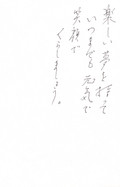 楽しい夢を指そ
いつまでも元気で
笑顔で
くらしましょう。